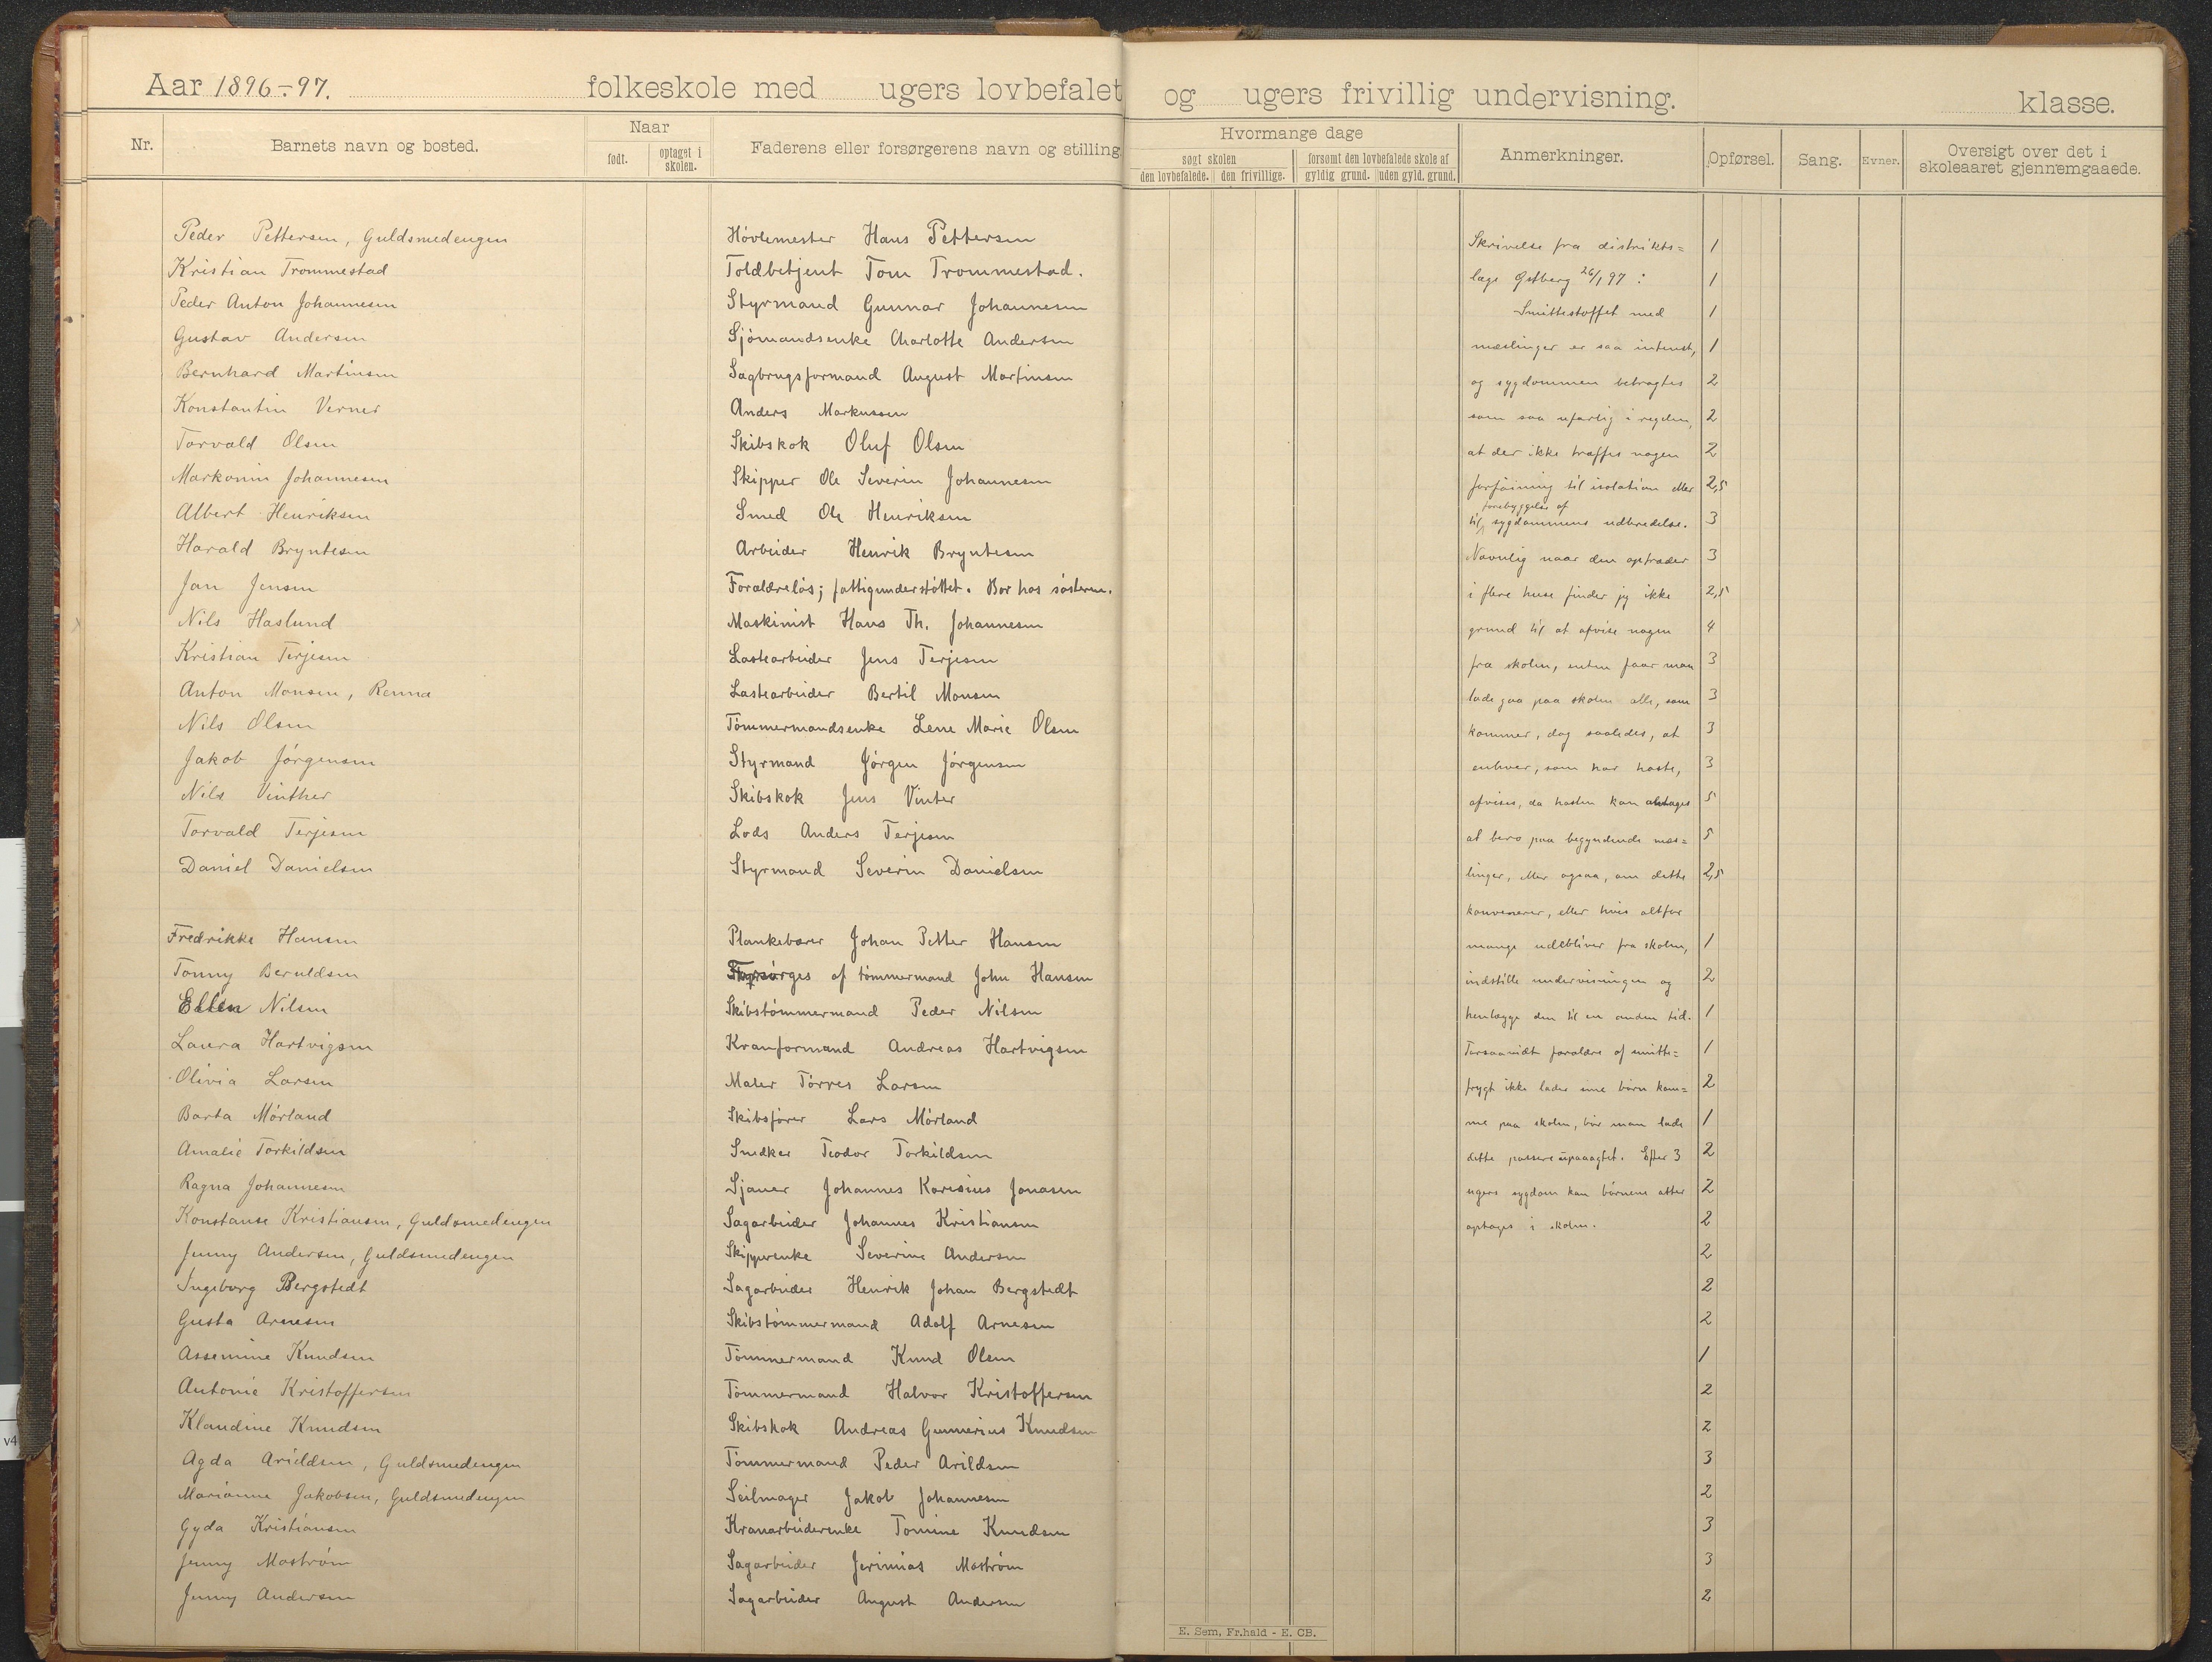 Aar 1896-97. folkeskole med ugers lovbefalet og ugers frivillig undervisning. klasse.
Nr. Barnets navn og bosted. Naar født. optaget i skolen. Faderens eller forsørgerens navn og stilling. Hvormange dage søgt skolen den lovbefalede. den frivillige. forsømt den lovbefalede skole af gyldig grund. uden gyld. grund. Anmerkninger. Opførsel. Sang. Evner. Oversigt over det i skoleaaret gjennemgaaede.
Peder Pettersen, Guldsmedengen Høvlemester Hans Pettersen Skrivelse fra distrikts= 1
Kristian Trommestad Toldbetjent Tom Trommestad. læge Østberg 26/1 97: 1
Peder Anton Johannesen Styrmand Gunnar Johannesen Smittestoffet med 1
Gustav Andersen Sjømandsenke Charlotte Andersen mæslinger er saa intenst, 1
Bernhard Martinsen Sagbrugsformand August Martinsen og sygdommen betragtes 2
Konstantin Verner Anders Markussen som saa ufarlig i regelen, 2
Torvald Olsen Skibskok Oluf Olsen at der ikke træffes nogen 2
Markonin Johannesen Skipper Ole Severin Johannesen forføining til isolation eller 2,5
Albert Henriksen Smed Ole Henriksen til forebyggelse af sygdommens udbredelse. 3
Harald Bryntesen Arbeider Henrik Bryntesen Navnlig naar den optræder 3
Jan Jensen Forældreløs; fattigunderstøttet. Bor hos søsteren. i flere huse finder jeg ikke 2,5
Nils Haslund Maskinist Hans Th. Johannesen grund til at afvise nogen 4
Kristian Terjesen Lastearbeider Jens Terjesen fra skolen, enten faar man 3
Anton Monsen, Renna Lastearbeider Bertil Monsen lade gaa paa skolen alle, som 3
Nils Olsen Tømmermandsenke Lene Marie Olsen kommer, dog saaledes, at 3
Jakob Jørgensen Styrmand Jørgen Jørgensen enhver, som har hoste, 3
Nils Vinther Skibskok Jens Vinter afvises, da hosten kan antages 5
Torvald Terjesen Lods Anders Terjesen at bero paa begyndende mæs= 5
Daniel Danielsen Styrmand Severin Danielsen linger, eller ogsaa, om dette 2,5
konvenerer, eller hvis altfor
Fredrikke Hansen Plankebærer Johan Petter Hansen mange udebliver fra skolen, 1
Tonny Beruldsen Forsørges af tømmermand John Hansen indstille undervisningen og 2
Ellen Nilsen Skibstømmermand Peder Nilsen henlægge den til en anden tid. 1
Laura Hartvigsen Kranformand Andreas Hartvigsen Forsaavidt forældre af smitte= 1
Olivia Larsen Maler Tørres Larsen frygt ikke lader sine børn kom= 2
Barta Mørland Skibsfører Lars Mørland me paa skolen, bør man lade 1
Amalie Torkildsen Snedker Teodor Torkildsen dette passere upaaagtet. Efter 3 2
Ragna Johannesen Sjauer Johannes Karesius Jonasen ugers sygdom kan børnene atter 2
Konstanse Kristiansen, Guldsmedengen Sagarbeider Johannes Kristiansen optages i skolen. 2
Jenny Andersen, Guldsmedengen Skipperenke Severine Andersen 2
Ingeborg Bergstedt Sagarbeider Henrik Johan Bergstedt 2
Gusta Arnesen Skibstømmermand Adolf Arnesen 2
Assemine Knudsen Tømmermand Knud Olsen 1
Antonie Kristoffersen Tømmermand Halvor Kristoffersen 2
Klaudine Knudsen Skibskok Andreas Gunnerius Knudsen 2
Agda Arildsen, Guldsmedengen Tømmermand Peder Arildsen 3
Marianne Jakobsen, Guldsmedengen Seilmager Jakob Johannesen 2
Gyda Kristiansen Kranarbeiderenke Tomine Knudsen 3
Jenny Mostrøm Sagarbeider Jerimias Mostrøm 3
Jenny Andersen Sagarbeider August Andersen 2
E. Sem, Fr.hald - E. CB.
v4